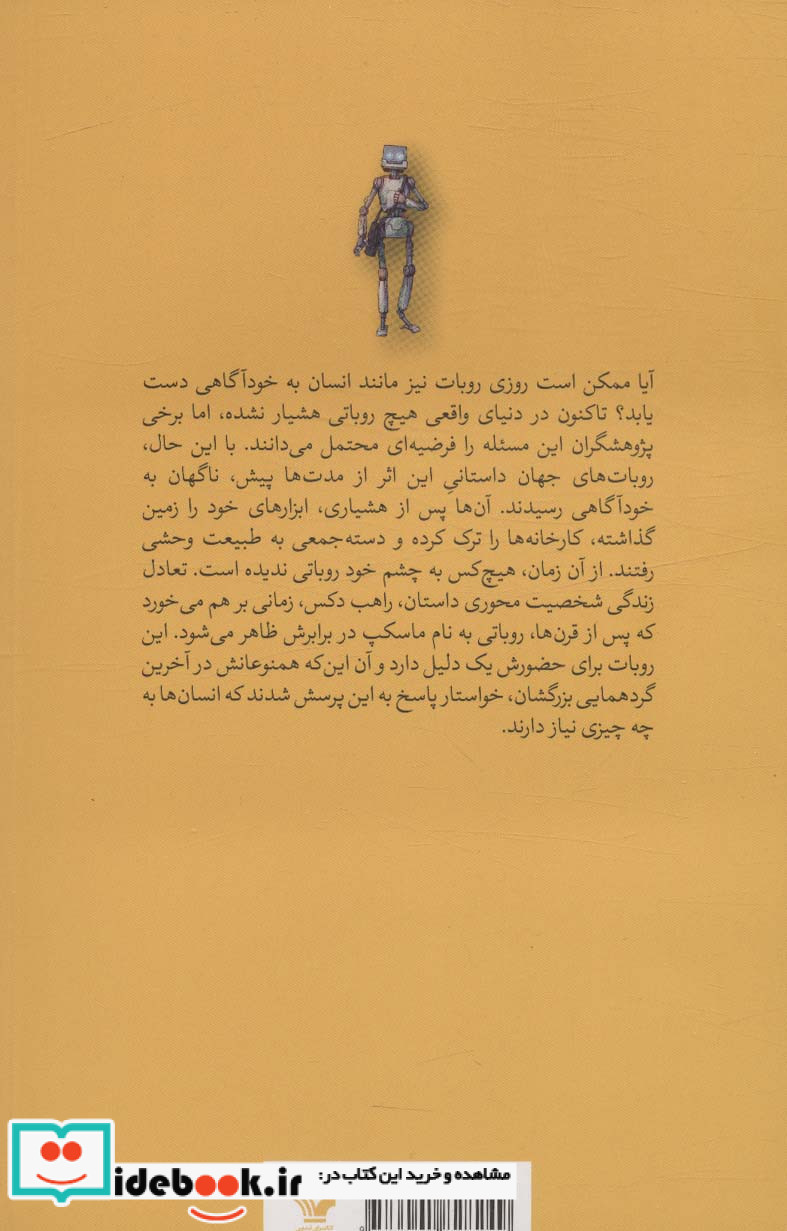 آیا ممکن است روزی روبات نیز مانند انسان به خودآگاهی دست
یابد؟ تاکنون در دنیای واقعی هیچ روباتی هشیار نشده، اما برخی
پژوهشگران این مسئله را فرضیه‌ای محتمل می‌دانند. با این حال،
روبات‌های جهان داستانیِ این اثر از مدت‌ها پیش، ناگهان به
خودآگاهی رسیدند. آن‌ها پس از هشیاری، ابزارهای خود را زمین
گذاشته، کارخانه‌ها را ترک کرده و دسته‌جمعی به طبیعت وحشی
رفتند. از آن زمان، هیچ‌کس به چشم خود روباتی ندیده است. تعادل
زندگی شخصیت محوری داستان، راهب دکس، زمانی بر هم می‌خورد
که پس از قرن‌ها، روباتی به نام ماسکپ در برابرش ظاهر می‌شود. این
روبات برای حضورش یک دلیل دارد و آن این‌که همنوعانش در آخرین
گردهمایی بزرگشان، خواستار پاسخ به این پرسش شدند که انسان‌ها به
چه چیزی نیاز دارند.
مشاهده و خرید این کتاب در:
idebook.ir